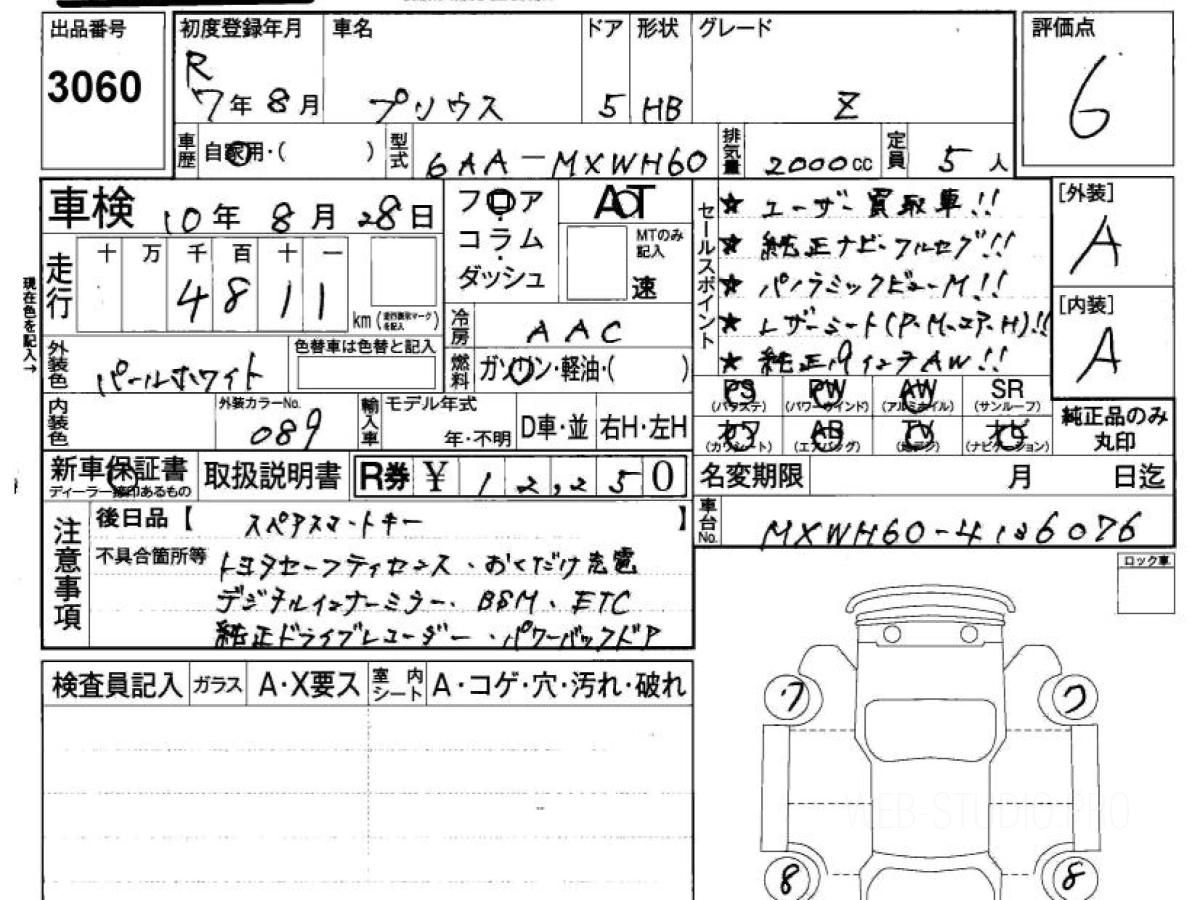 出品番号
3060
初度登録年月
R
7年8月
車名
プリウス
ドア
5
形状
HB
グレード
Z
評価点
6
車歴
自家用・( )
型式
6AA-MXWH60
排気量
2000cc
定員
5人
車検
10年8月28日
フロア
コラム
ダッシュ
AT
MTのみ記入
速
セールスポイント
★ ユーザー買取車!!
★ 純正ナビ・フルセグ!!
★ パノラミックビューM!!
★ レザーシート(P・M・エア・H)!!
★ 純正19インチAW!!
[外装]
A
[内装]
A
現在色を記入→
走行
十万千百十一
4811
km(走行表示マークを記入)
冷房
AAC
外装色
パールホワイト
色替車は色替と記入
燃料
ガソリン・軽油・( )
PS
(パワステ)
PW
(パワーウインド)
AW
(アルミホイル)
SR
(サンルーフ)
カワ
(カワシート)
AB
(エアバッグ)
TV
(地デジ)
ナビ
(ナビゲーション)
純正品のみ
丸印
内装色
外装カラーNo.
089
輸入車
モデル年式
年・不明
D車・並
右H・左H
新車保証書
ディーラー捺印あるもの
取扱説明書
R券 ¥ 12,250
名変期限
月 日迄
車台No.
MXWH60-4136076
注意事項
後日品【 スペアスマートキー 】
不具合箇所等
トヨタセーフティセンス・おくだけ充電
デジタルインナーミラー、BSM、ETC
純正ドライブレコーダー・パワーバックドア
ロック車
検査員記入
ガラス
A・X要ス
室内シート
A・コゲ・穴・汚れ・破れ
7
7
8
8
WEB-STUDIO.PRO